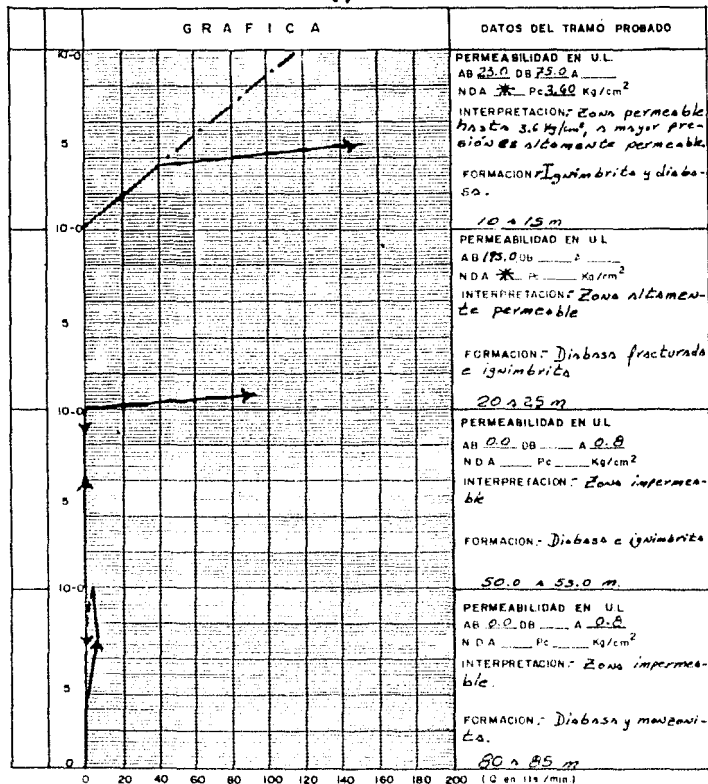 GRAFICA
DATOS DEL TRAMO PROBADO
PERMEABILIDAD EN U.L.
AB 23.0 DB 75.0 A
NDA * Pc 3.60 Kg/cm²
INTERPRETACION:- Zona permeable
hasta 3.6 Kg/cm², a mayor pre-
sión es altamente permeable.
FORMACION:- Ignimbrita y diaba-
sa.
10 a 15 m
PERMEABILIDAD EN U.L
AB 195.0 DB A
NDA * Pc Kg/cm²
INTERPRETACION:- Zona altamen-
te permeable
FORMACION.- Diabasa fracturada
e ignimbrita
20 a 25 m
PERMEABILIDAD EN U.L
AB 0.0 DB A 0.8
NDA Pc Kg/cm²
INTERPRETACION:- Zona impermea-
ble
FORMACION.- Diabasa e ignimbrita
50.0 a 53.0 m.
PERMEABILIDAD EN U.L
AB 0.0 DB A 0.8
NDA Pc Kg/cm²
INTERPRETACION:- Zona impermea-
ble.
FORMACION.- Diabasa y monzoni-
ta.
80 a 85 m
10-0
5
10-0
5
10-0
5
10-0
5
0
0 20 40 60 80 100 120 140 160 180 200 (Q en lts/min.)